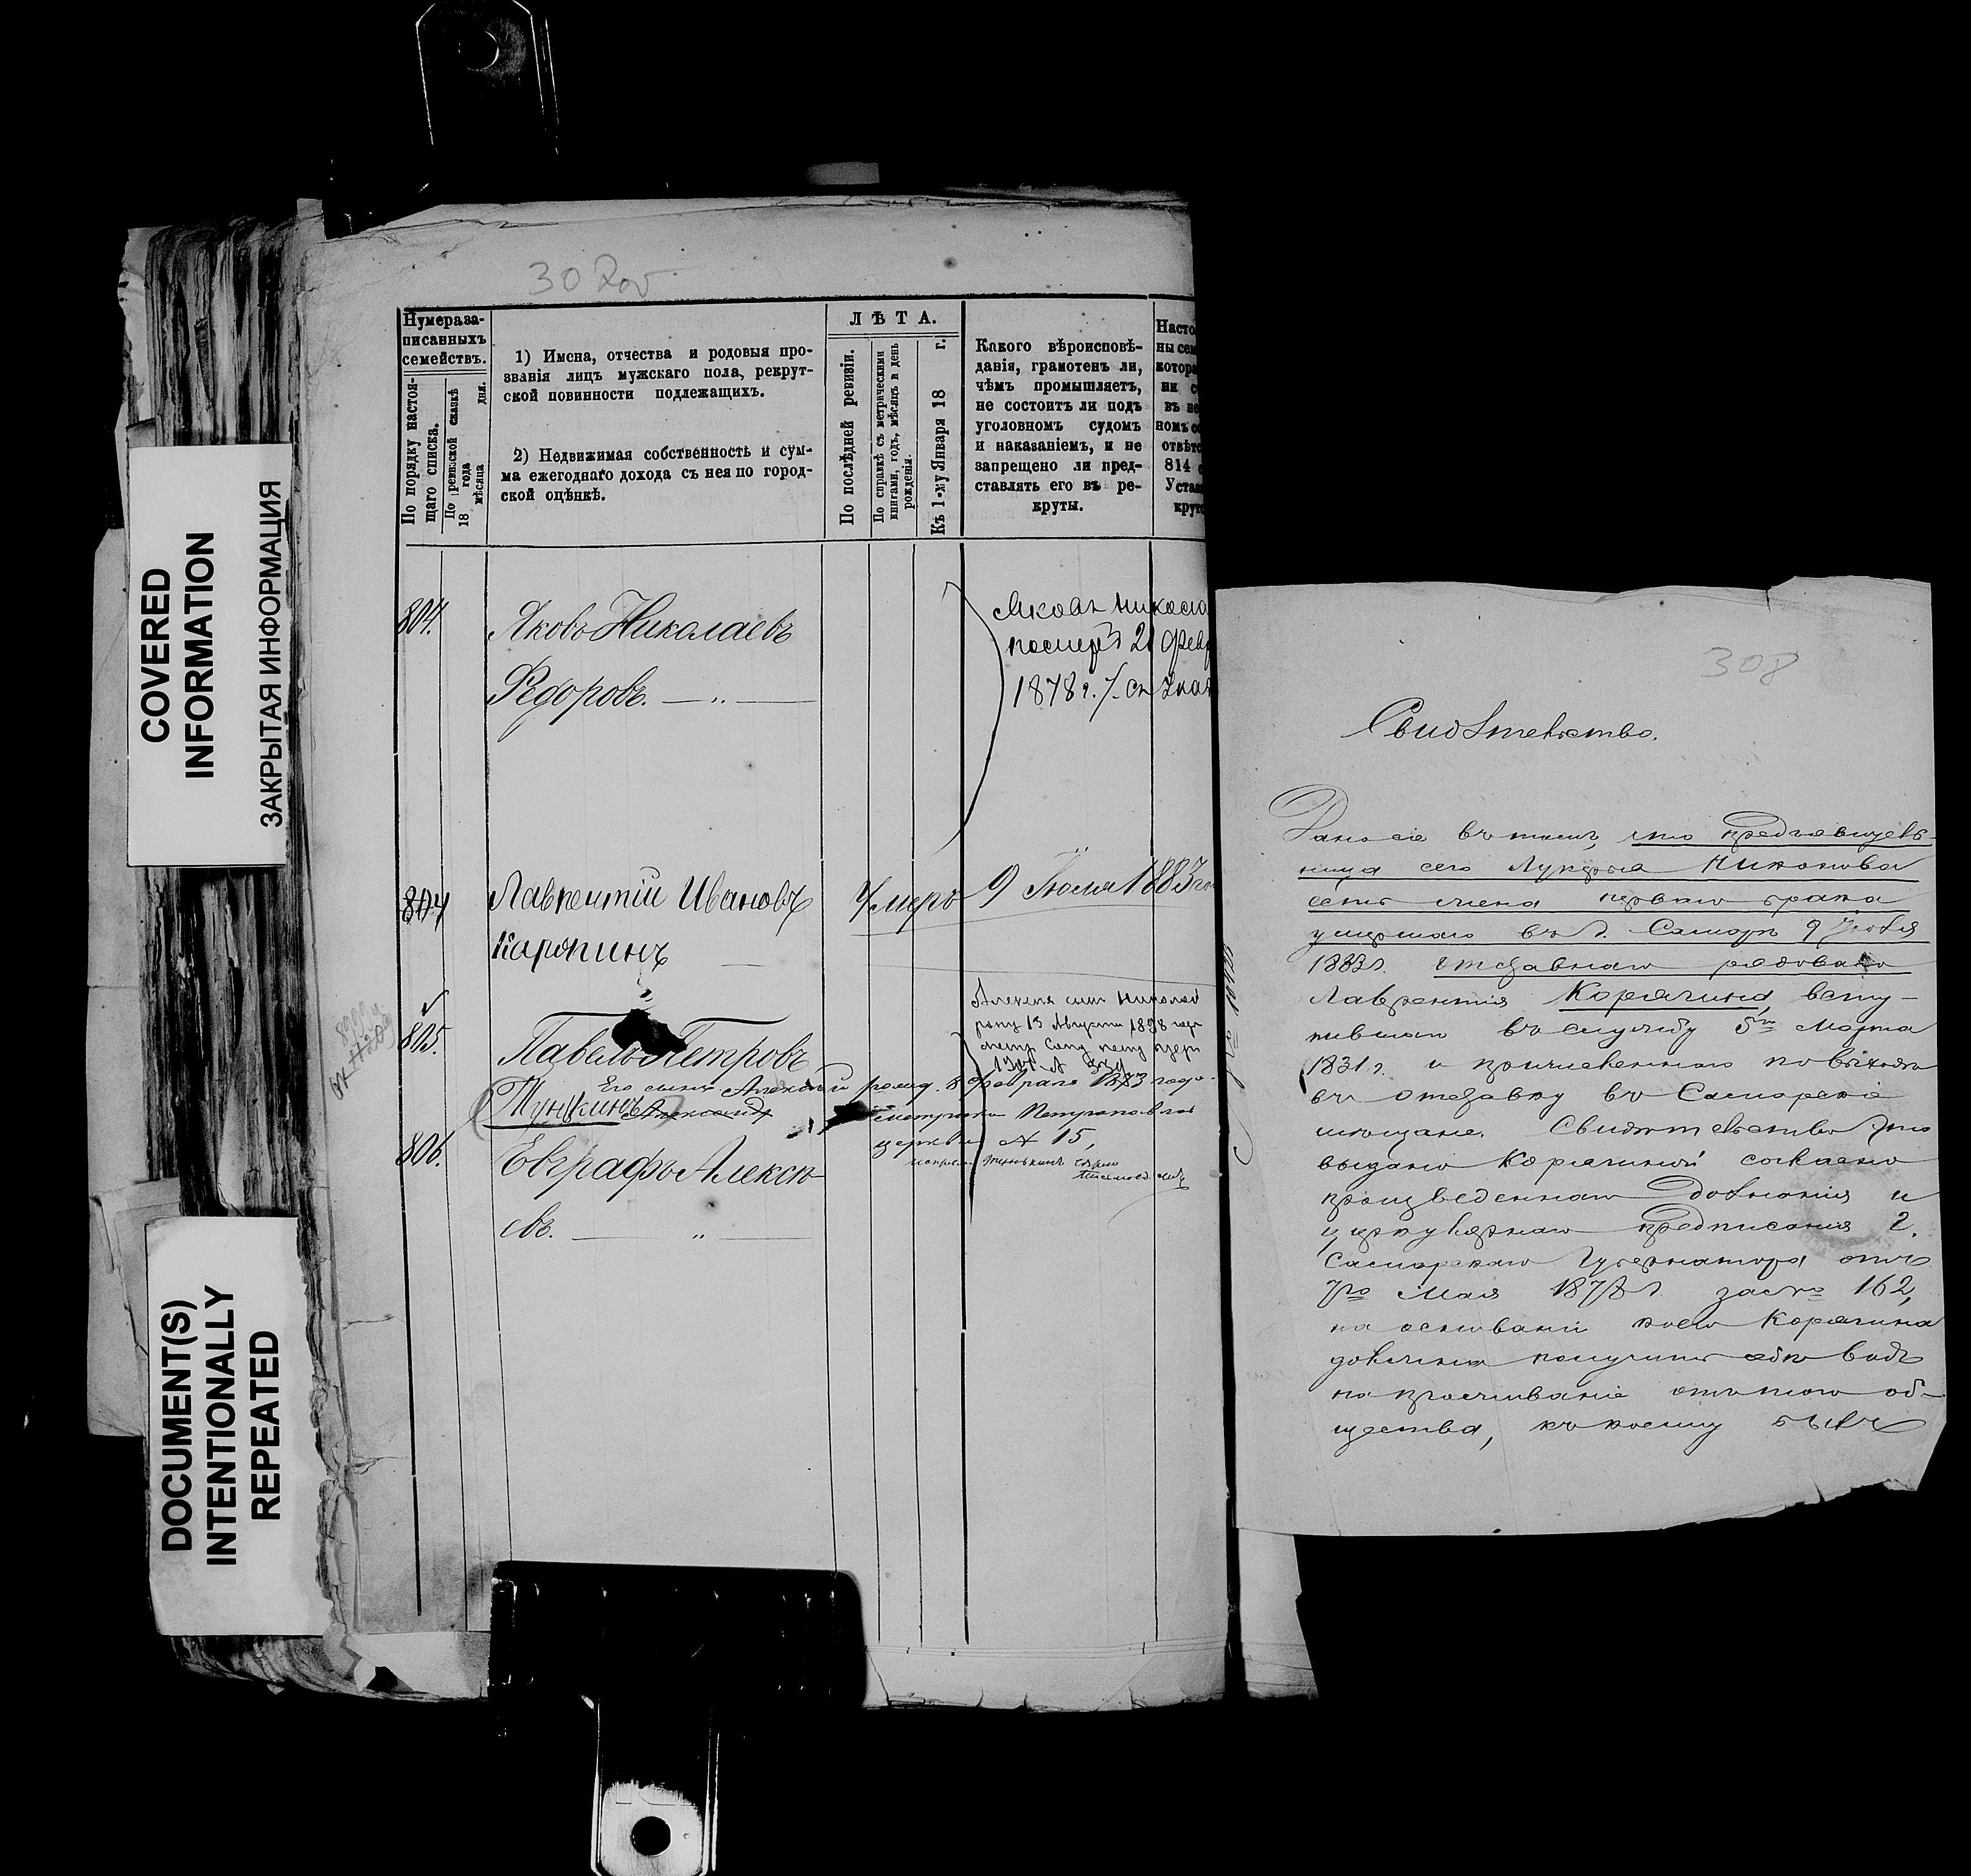 COVERED
INFORMATION
ЗАКРЫТАЯ ИНФОРМАЦИЯ
DOCUMENT(S)
INTENTIONALLY
REPEATED
Нумера за-
писанныхъ
семействъ.
По порядку настоя-
щаго списка.
По ревизской сказкѣ
18 года
мѣсяца дня.
1) Имена, отчества и родовыя про-
званія лицъ мужскаго пола, рекрут-
ской повинности подлежащихъ.
2) Недвижимая собственность и сум-
ма ежегоднаго дохода съ нея по город-
ской оцѣнкѣ.
ЛѢТА.
По послѣдней ревизіи.
По справкѣ съ метрическими
книгами, годъ, мѣсяцъ и день
рожденія.
Къ 1-му Января 18 г.
Какого вѣроисповѣ-
данія, грамотенъ ли,
чѣмъ промышляетъ,
не состоитъ ли подъ
уголовномъ судомъ
и наказаніемъ, и не
запрещено ли пред-
ставлять его въ ре-
круты.
Насто
ны сем
котора
ни с
въ не
номъ с
отвѣтс
814 с
Уста
крут
804.
Яковъ Николаевъ
Ѳедоровъ.
Яковъ Никола
1878 г.
804
Лаврентій Ивановъ
Умеръ 9 Іюля 1883
Карягинъ
805.
Павелъ Петровъ
Его сынъ Алексѣй рожд. 8 Февраля 1873 года
метрика Петропавлов
церкви № 15,
806.
Евграфъ Алексѣ-
евъ.
308
Свидѣтельство.
Дано сіе въ томъ, что предъявитель-
ница сего Лукерья Никонова
есть жена перваго брака
умершаго въ г. Самарѣ 9 Іюля
1883 г. отставнаго рядоваго
Лаврентія Корягина, всту-
пившаго въ службу 5го Марта
1831 г. и причисленнаго по выходѣ
въ отставку въ Самарскіе
мѣщане. Свидѣтельство это
выдано Корягиной согласно
произведеннаго дознанія и
циркулярнаго предписанія г.
Самарскаго Губернатора отъ
7го Мая 1878 г. за № 162,
на основаніи коего Корягина
должна получить себѣ видъ
на проживаніе отъ того об-
щества, къ коему былъ